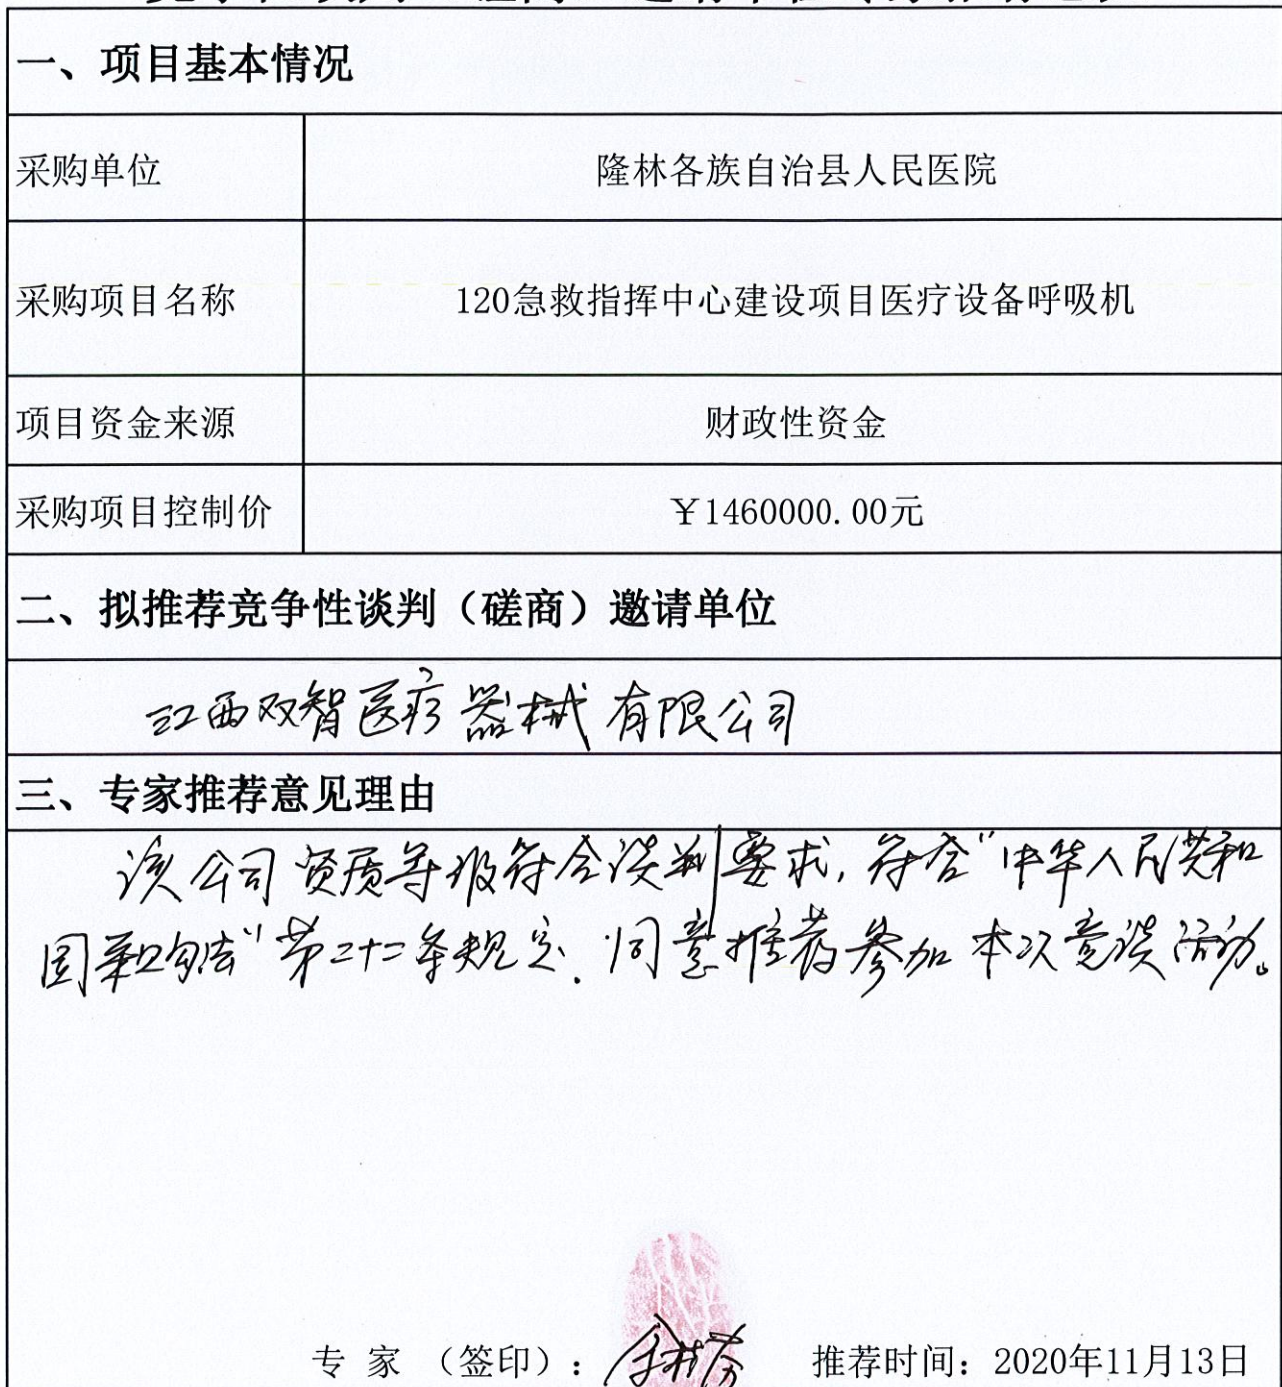 一、项目基本情况
采购单位 隆林各族自治县人民医院
采购项目名称 120急救指挥中心建设项目医疗设备呼吸机
项目资金来源 财政性资金
采购项目控制价 ￥1460000.00元
二、拟推荐竞争性谈判（磋商）邀请单位
江西双智医疗器械有限公司
三、专家推荐意见理由
该公司资质等级符合谈判要求,符合“中华人民共和
国采购法”第二十二条规定.同意推荐参加本次竞谈活动。
专 家 （签印）： 推荐时间：2020年11月13日